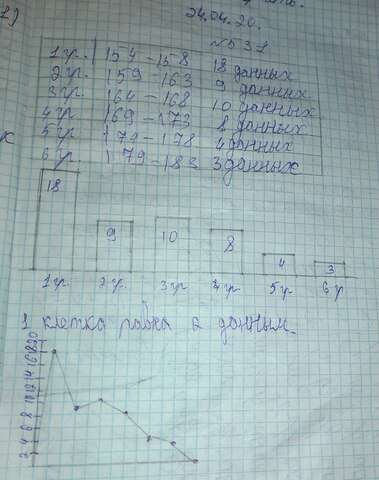 24.04.20.
№531
1 гр. 154-158 18 данных
2 гр. 159-163 9 данных
3 гр. 164-168 10 данных
4 гр 169-173 8 данных
5 гр 174-178 4 данных
6 гр. 179-183 3 данных
18 9 10 8 4 3
1 гр. 2 гр. 3 гр. 4 гр. 5 гр 6 гр
1 клетка равна 2 данным.
20
18
16
14
12
10
8
6
4
2